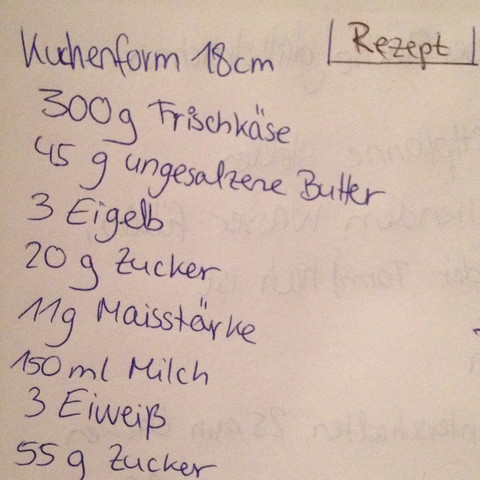 Rezept
Kuchenform 18cm
300g Frischkäse
45 g ungesalzene Butter
3 Eigelb
20 g Zucker
11g Maisstärke
150 ml Milch
3 Eiweiß
55 g Zucker